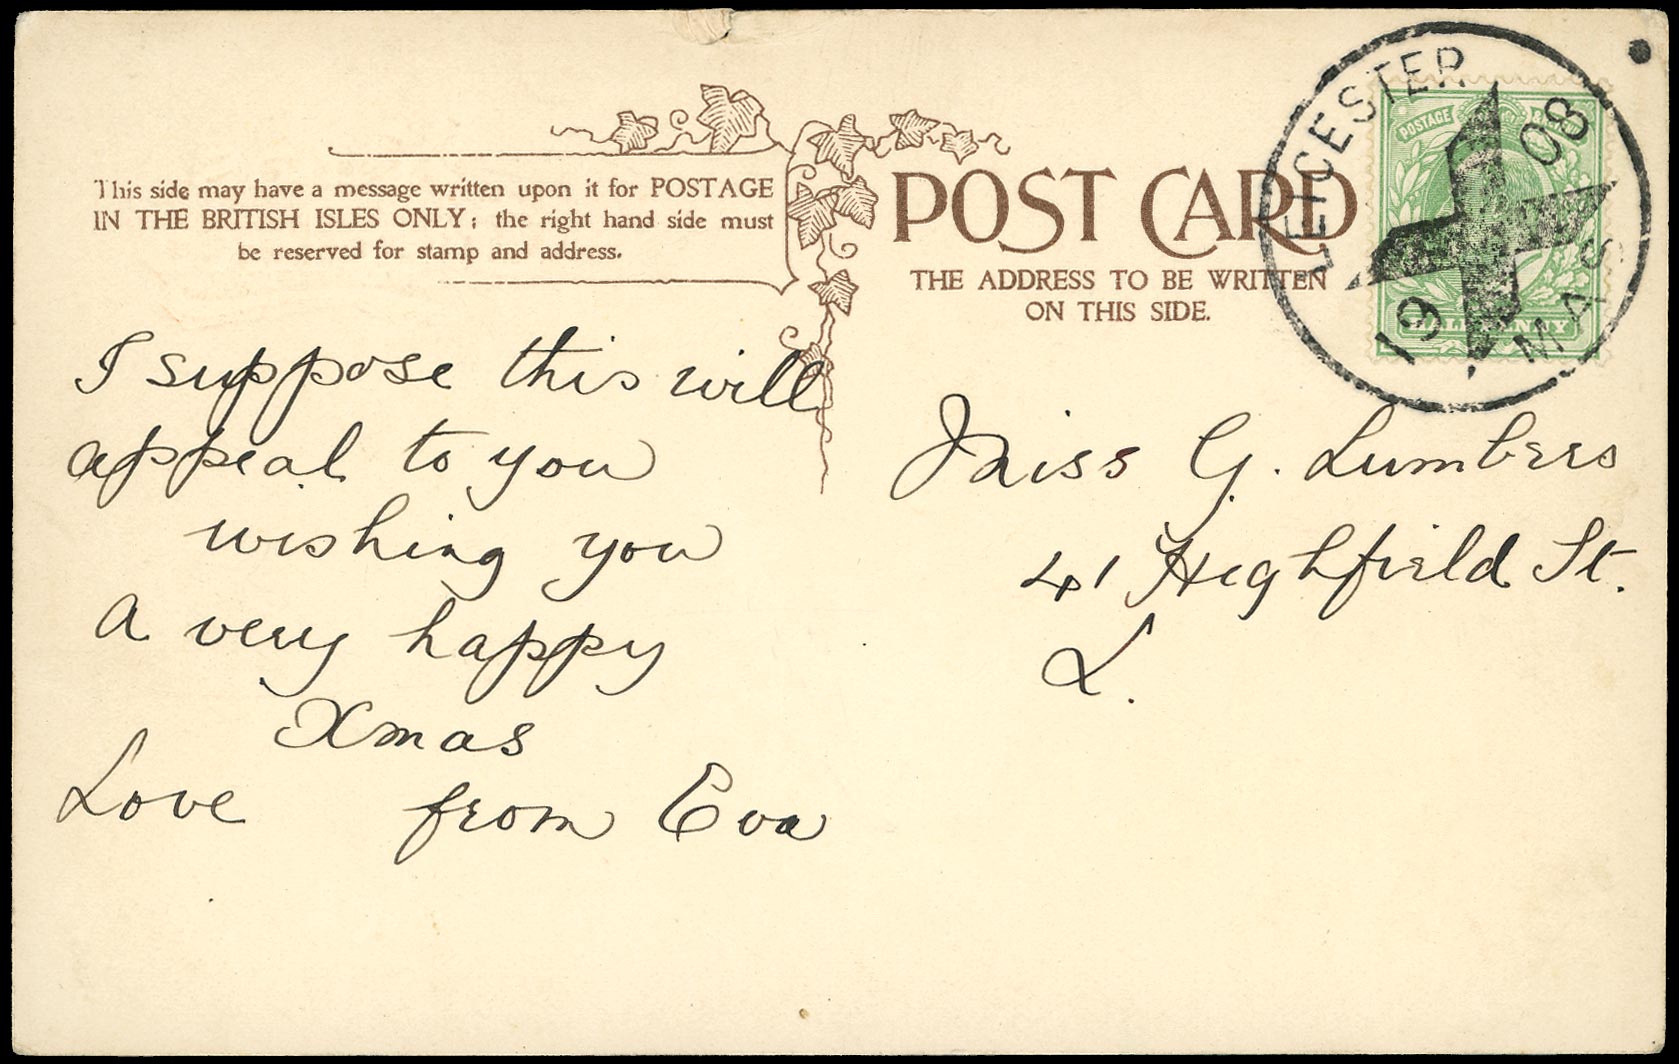 This side may have a message written upon it for POSTAGE
IN THE BRITISH ISLES ONLY; the right hand side must
be reserved for stamp and address.
POST CARD
THE ADDRESS TO BE WRITTEN
ON THIS SIDE.
LEICESTER
19 XMAS 08
POSTAGE
HALFPENNY
I suppose this will
appeal to you
wishing you
a very happy
Xmas
Love from Eva
Miss G. Lumbers
41 Highfield St.
L.